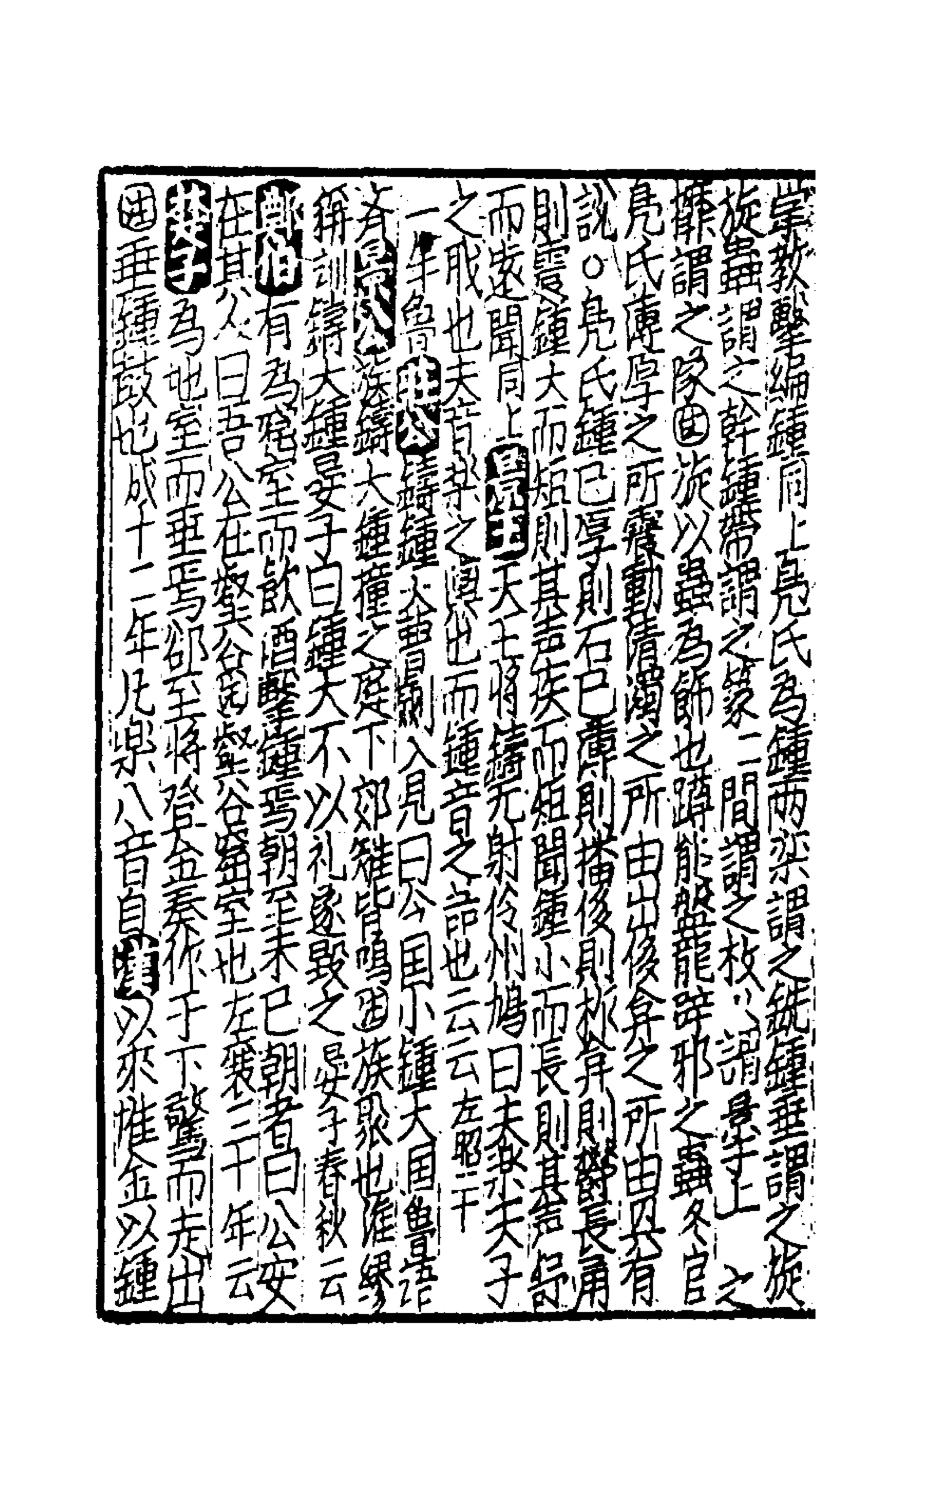 掌教擊編鍾同上鳧氏為鍾兩欒謂之銑鍾垂謂之旋
旋蟲謂之幹鍾帶謂之篆二間謂之枚〻謂景上之
攠謂之隧注旋以蟲為飾也蹲熊盤龍辟邪之蟲冬官
鳧氏薄厚之所震動清濁之所由出侈弇之所由興有
說○鳧氏鍾已厚則石已薄則播侈則柞弇則欝長甬
則震鍾大而短則其声疾而短聞鍾小而長則其声舒
而遠聞同上景王天王將鑄无射伶州鳩曰夫樂天子
之職也夫音樂之輿也而鍾音之器也云云左昭二十
一年魯莊公鑄鍾大曹劌入見曰今国小鍾大国魯語
斉景公族鑄大鍾撞之庭下郊雉皆鳴注族聚也淮繆
稱訓鑄大鍾晏子曰鍾大不以礼遂毀之晏子春秋云
鄭伯有為窟室而飲酒擊鍾焉朝至未已朝者曰公安
在其人曰吾公在壑谷注壑谷窟室也左襄三十年云
楚子為地室而垂焉郤至將登金奏作于下驚而走出
注垂鍾鼓也成十二年凡樂八音自漢以來惟金以鍾